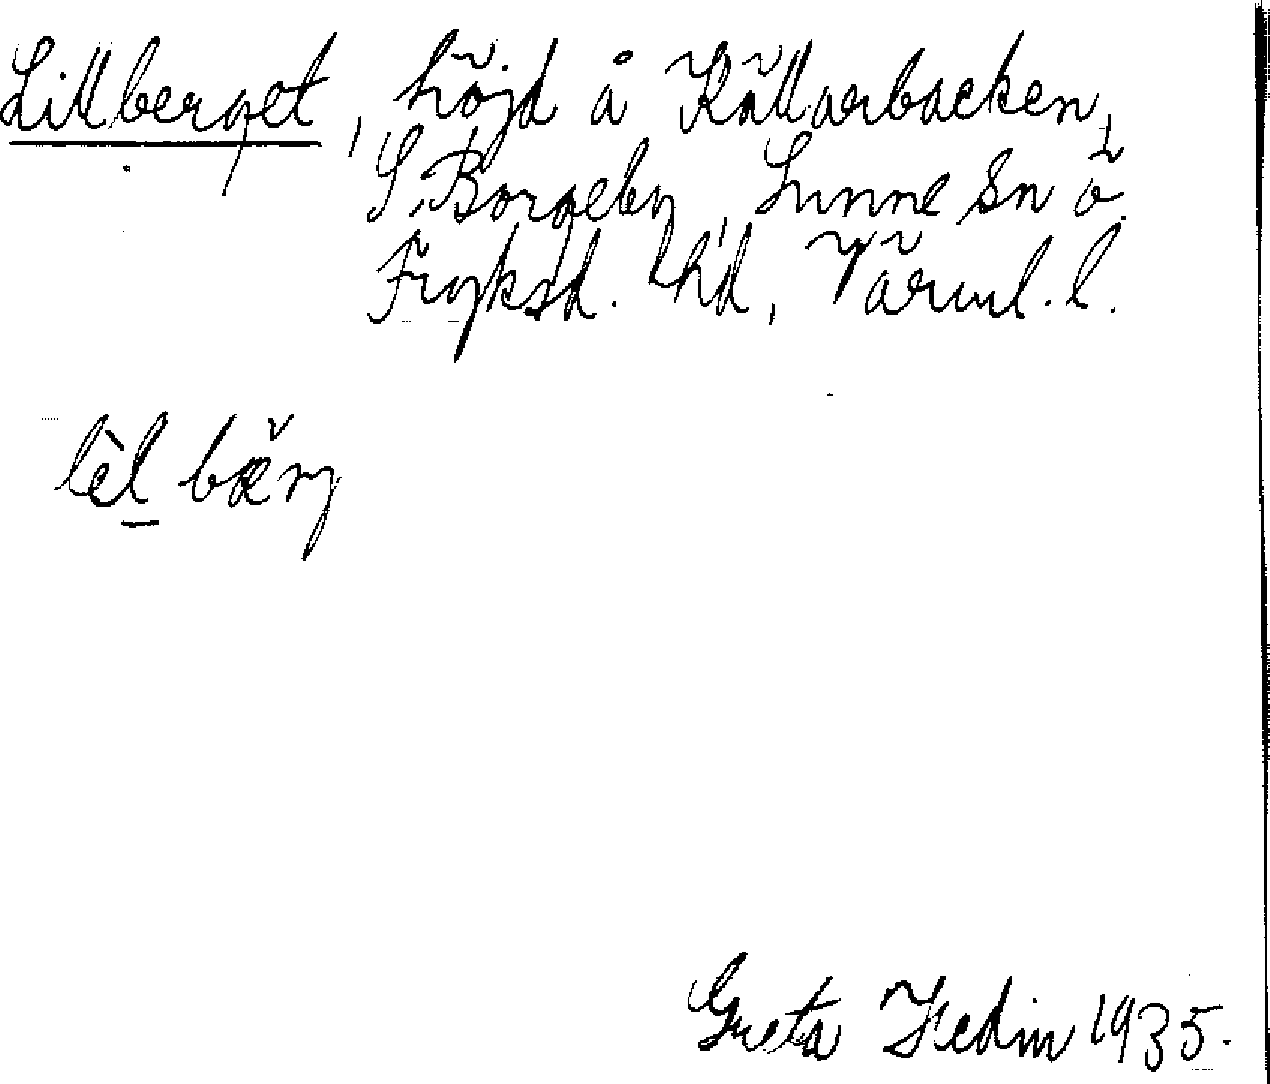 Lillberget, höjd å Källarbacken,
S. Borgeby, Sunne sn ö.
Fryksd. hd, Värml. l.
lèl bæ̌rj
Greta Hedin 1935.